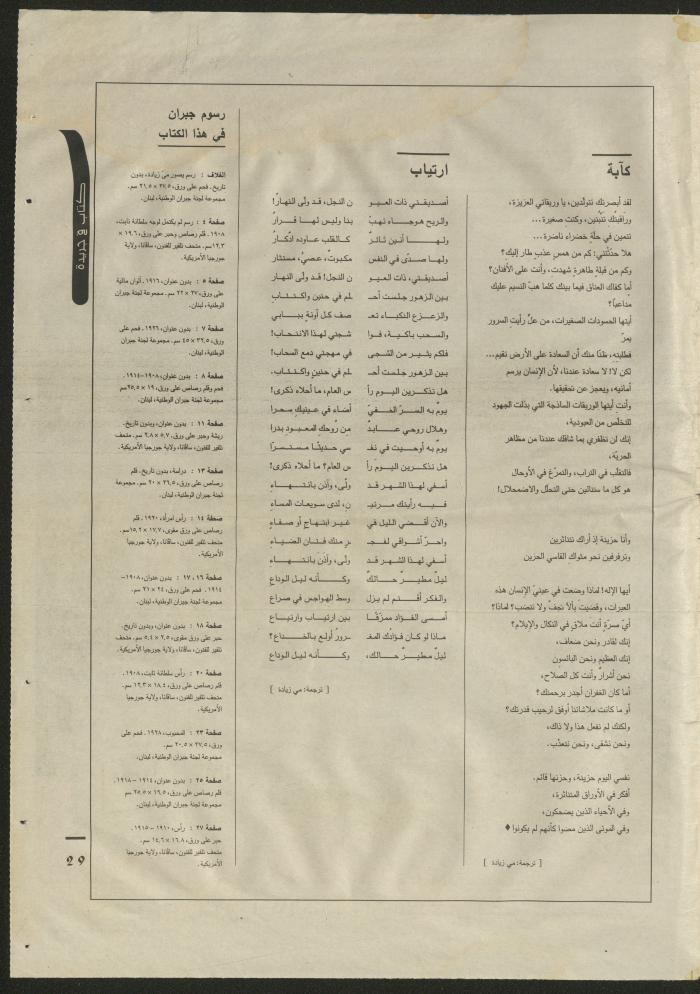 كآبة
لقد أبصرتك تتولّدين، يا وريقاتي العزيزة،
ورافقتك تنبُتين، وكنتِ صغيرة...
تنمين في حلّة خضراء ناضرة...
هلا حدّثتني: كم من همسٍ عذبٍ طار إليك؟
وكم من قبلةٍ طاهرةٍ شهدت، وأنت على الأفنان؟
أما كفاك العناق فيما بينك كلما هبّ النسيم عليك
مداعباً؟
أيتها الحسودات الصغيرات، من علٍّ رأيتِ السرور
يمرّ
فطلبته، ظنّا منك أن السعادة على الأرض تقيم...
لكن لا! لا سعادة عندنا، لأن الإنسان يرسم
أمانيه، ويعجز عن تحقيقها.
وأنتِ أيتها الوريقات الساذجة التي بذلت الجهود
للتخلّص من العبودية،
إنك لن تظفري بما شاقك عندنا من مظاهر
الحريّة،
فالتقلّب في التراب، والتمرّغ في الأوحال
هو كل ما ستنالين حتى التحلّل والاضمحلال!
وأنا حزينة إذ أراك تتناثرين
وترفرفين نحو مثواك القاسي الحزين
أيها الإله! لماذا وضعت في عينيْ الإنسان هذه
العبرات، وقضيتَ بألاّ تجفّ ولا تنضب؟ لماذا؟
أيّ مسرّةٍ أنت ملاقٍ في النكال والإيلام؟
إنك لقادر ونحن ضعاف،
إنك العظيم ونحن البائسون
نحن أشرارٌ وأنت كل الصلاح،
أما كان الغفران أجدر برحمتك؟
أو ما كانت ملاشاتنا أوفق لرحيب قدرتك؟
ولكنك لم تفعل هذا ولا ذاك،
ونحن نشقى، ونحن نتعذّب.
نفسي اليوم حزينة، وحزنها قاتم.
أفكر في الأوراق المتناثرة،
وفي الأحياء الذين يضحكون،
وفي الموتى الذين مضوا كأنهم لم يكونوا ♦
[ ترجمة: مي زيادة ]
ارتياب
أصديقتي ذات العيو ن النجل، قد ولّى النهارُ!
والريح هوجاء تهبّ بنا وليس لها قرارُ
ولها أنين ثائرٌ كالقلب عاوده ادّكارُ
ولها صدًى في النفس مكبوتٌ، عصيٌ، مستثار
أصديقتي، ذات العيو ن النجل! قد ولّى النهار
بين الزهور جلست أحـ لم في حنين واكتئاب
والزعزع النكباء تعـ صف كل آونةٍ ببابي
والسحب باكية، فوا شجني لهذا الانتحاب!
فلكم يثير من الشجى في مهجتي دمع السحاب!
بين الزهور جلست أحـ لم في حنين واكتئاب.
هل تذكرين اليوم رأ س العام، ما أحلاه ذكرى!
يوم به السرّ الخفيّ أضاء في عينيك سحرا
وهلال روحي عابدٌ من رُوحكِ المعبود بدرا
يوم به أوحيت في نفـ سي حديثا مستسرّا
هل تذكرين اليوم رأ س العام؟ ما أحلاه ذكرى!
أسفي لهذا الشهر قد ولّى، وأذن بانتهاء
فيه رأيتك مرتيـ ن، لدى سويعات المساء
والآن أقضي الليل في غير ابتهاج أو صفاء
واحرّ أشواقي لفجـ ر منك فتان الضياء
أسفي لهذا الشهر قد ولى، وأذن بانتهاء
ليلٌ مطيرٌ حالكٌ وكأنه ليل الوداع
والفكر أقتم لم يزل وسط الهواجس في صراع
أمسى الفؤاد ممزّقا بين ارتياب وارتياع
ماذا لو كان فؤادك المغـ رور أولع بالخداع؟
ليلٌ مطيرٌ حالك، وكأنه ليل الوداع
[ ترجمة: مي زيادة ]
رسوم جبران
في هذا الكتاب
الغلاف : رسم يصور مي زيادة، بدون
تاريخ. فحم على ورق، ٢٧،٥ × ٢١،٥ سم.
مجموعة لجنة جبران الوطنية، لبنان.
صفحة ٤ : رسم لم يكتمل لوجه سلطانة ثابت،
١٩٠٨. قلم رصاص وحبر على ورق، ١٩،٦ ×
١٢،٣ سم. متحف تلفير للفنون، سافانا، ولاية
جورجيا الأمريكية.
صفحة ٥ : بدون عنوان، ١٩١٦. ألوان مائية
على ورق، ٢٧ × ٢٢ سم. مجموعة لجنة جبران
الوطنية، لبنان.
صفحة ٧ : بدون عنوان، ١٩٢٦. فحم على
ورق، ٣٦،٥ × ٤٥ سم. مجموعة لجنة جبران
الوطنية، لبنان.
صفحة ٨ : بدون عنوان، ١٩٠٨-١٩١٤.
فحم وقلم رصاص على ورق، ١٩ × ٢٥،٥ سم
مجموعة لجنة جبران الوطنية، لبنان.
صفحة ١١ : بدون عنوان، وبدون تاريخ.
ريشة وحبر على ورق، ٥،٧ × ٦،٨ سم. متحف
تلفير للفنون، سافانا، ولاية جورجيا الأمريكية.
صفحة ١٣ : دراسة، بدون تاريخ. قلم
رصاص على ورق، ٢٦،٥ × ٢٠ سم. مجموعة
لجنة جبران الوطنية، لبنان.
صفحة ١٤ : رأس امرأة، ١٩٢٠. قلم
رصاص على ورق مقوى، ١٧،٧ × ١٥،٢ سم.
متحف تلفير للفنون، سافانا، ولاية جورجيا
الأمريكية.
صفحة ١٦، ١٧ : بدون عنوان، ١٩٠٨-
١٩١٤. فحم على ورق، ٢٤ × ٢١ سم.
مجموعة لجنة جبران الوطنية، لبنان.
صفحة ١٨ : بدون عنوان، وبدون تاريخ.
حبر على ورق مقوى، ٢،٥ × ٥،٤ سم. متحف
تلفير للفنون، سافانا، ولاية جورجيا الأمريكية.
صفحة ٢٠ : رأس سلطانة ثابت، ١٩٠٨.
قلم رصاص على ورق، ١٨،٤ × ١٢،٣ سم.
متحف تلفير للفنون، سافانا، ولاية جورجيا
الأمريكية.
صفحة ٢٣ : المحبوب، ١٩٢٨. فحم على
ورق، ٢٧،٥ × ٢٠،٥ سم.
مجموعة لجنة جبران الوطنية، لبنان.
صفحة ٢٥ : بدون عنوان، ١٩١٤ - ١٩١٨.
قلم رصاص على ورق، ١٦،٥ × ٢٥،٥ سم
مجموعة لجنة جبران الوطنية، لبنان.
صفحة ٢٧ : رأس، ١٩١٠ - ١٩١٥.
حبر على ورق، ١٦،٨ × ١٤،٦ سم.
متحف تلفير للفنون، سافانا، ولاية جورجيا
الأمريكية.
كتاب في جريدة
29